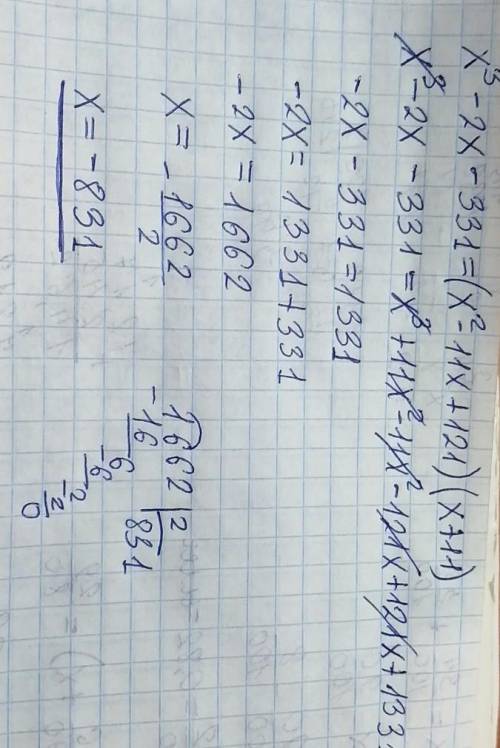 x³ - 2x - 331 = (x² - 11x + 121)(x + 11)
x³ - 2x - 331 = x³ + 11x² - 11x² - 121x + 121x + 133
-2x - 331 = 1331
-2x = 1331 + 331
-2x = 1662
x = - 1662/2
x = -831
1662 | 2
-16 831
6
-6
2
-2
0